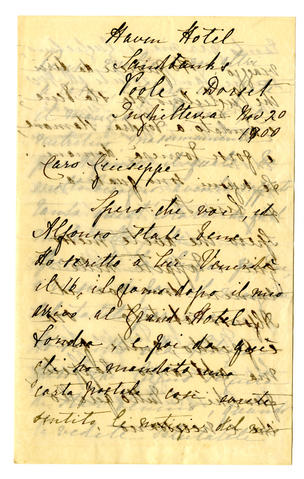 Haven Hotel
Sandbanks
Poole, Dorset
Inghilterra Nov 20
1900
Caro Giuseppe
Spero che voi, ed
Alfonso state bene
Ho scritto a Liv Venerdì
il 16, il giorno dopo il mio
arrivo al Grand Hotel
Londra e poi da qui
ti ho mandato una
carta postale così avete
sentito le notizie del mio